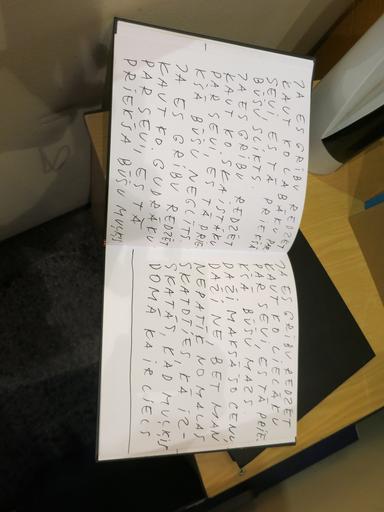 JA ES GRIBU REDZĒT
KAUT KO LABĀKU PA
SEVI ES TĀ PRIEKŠĀ
BŪŠU SLIKTS.
JA ES GRIBU REDZĒT
KAUT KO SKAISTĀKU
PAR SEVI, ES TĀ PRIE
KŠĀ BŪŠU NEGLĪTS
JA ES GRIBU REDZĒT
KAUT KO GUDRĀKU
PAR SEVI, ES TĀ
PRIEKŠĀ BŪŠU MUĻĶIS
JA ES GRIBU REDZĒT
KAUT KO LIELĀKU
PAR SEVI, ES TĀ PRIE-
KŠĀ BŪŠU MAZS
DAŽI MAKSĀ ŠO CENU,
DAŽI NE BET MAN
NEPATĪK NO MALAS
SKATOTIES KĀ IZ-
SKATĀS, KAD MUĻĶIS
DOMĀ KA IR LIELS